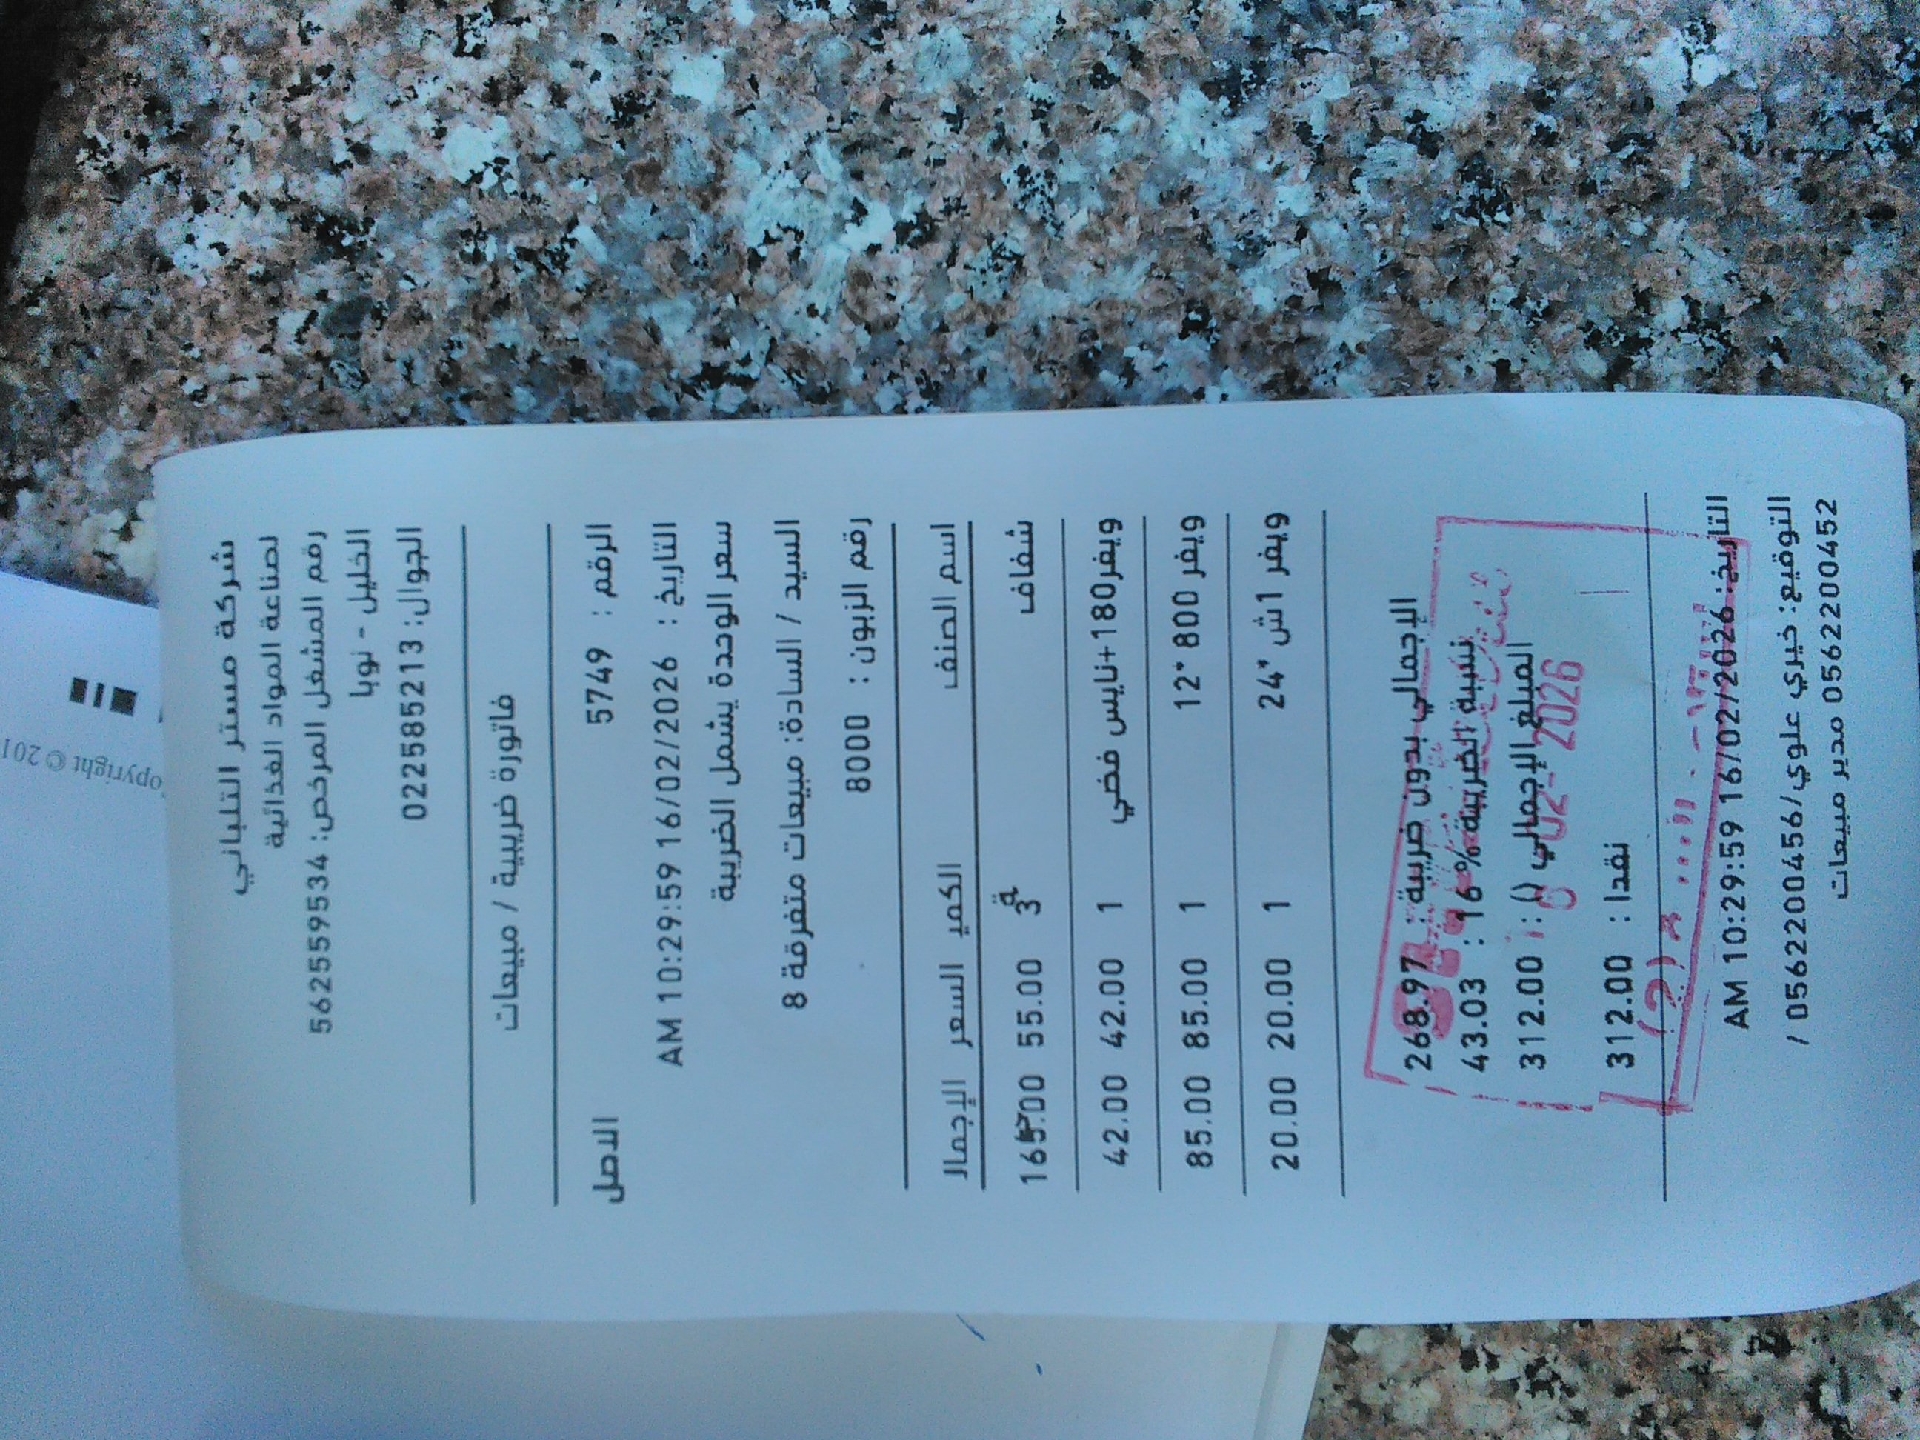 شركة مستر التلباني
لصناعة المواد الغذائية
رقم المشغل المرخص: 562559534
الخليل - نوبا
الجوال: 022585213
فاتورة ضريبية / مبيعات
الرقم : 5749 الاصل
التاريخ : 16/02/2026 10:29:59 AM
سعر الوحدة يشمل الضريبة
السيد / السادة: مبيعات متفرقة 8
رقم الزبون : 8000
اسم الصنف الكمية السعر الإجمالـ
شفاف 3 55.00 165.00
ويفر180+نايس فضي 1 42.00 42.00
ويفر 800 *12 1 85.00 85.00
ويفر 1ش *24 1 20.00 20.00
الإجمالي بدون ضريبة : 268.97
نسبة الضريبة %16 : 43.03
المبلغ الإجمالي () : 312.00
02-2026
نقدا : 312.00
التاريخ: 16/02/2026 10:29:59 AM
التوقيع: خيري علوي/0562200456 /
0562200452 مدير مبيعات
opyright © 201